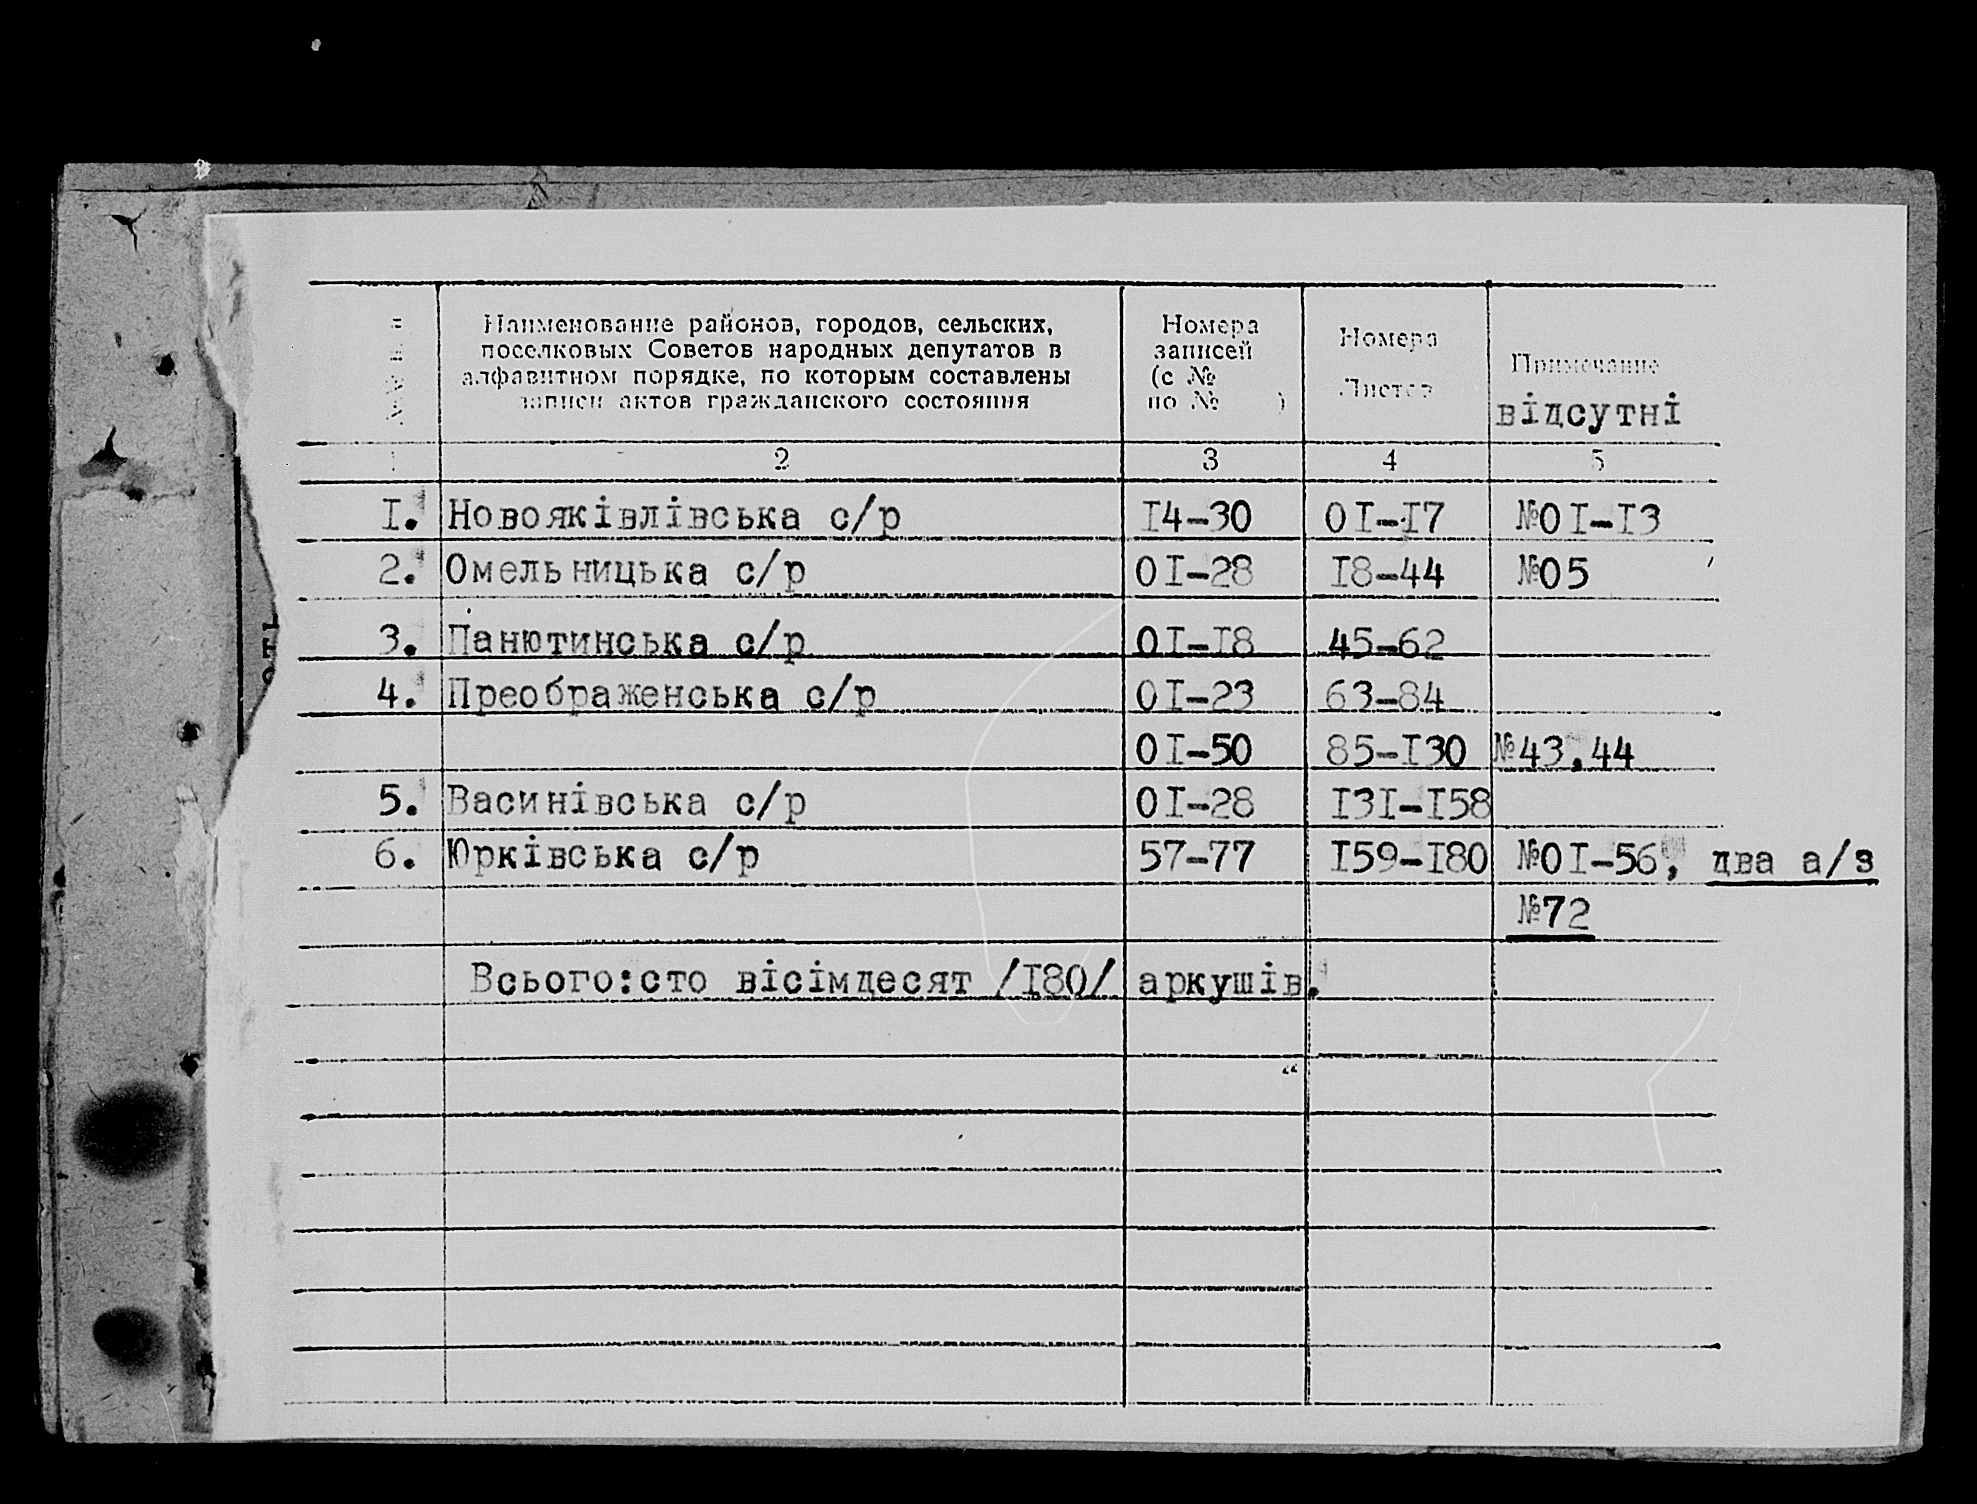 Наименование районов, городов, сельских,
поселковых Советов народных депутатов в
алфавитном порядке, по которым составлены
записи актов гражданского состояния
Номера
записей
(с №
по № )
Номера
Листов
Примечание
відсутні
2 3 4 5
I. Новояківлівська с/р I4-30 0I-I7 №0I-I3
2. Омельницька с/р 0I-28 I8-44 №05
3. Панютинська с/р 0I-I8 45-62
4. Преображенська с/р 0I-23 63-84
0I-50 85-I30 №43,44
5. Васинівська с/р 0I-28 I3I-I58
6. Юрківська с/р 57-77 I59-I80 №0I-56, два а/з
№72
Всього:сто вісімдесят /I80/ аркушів.